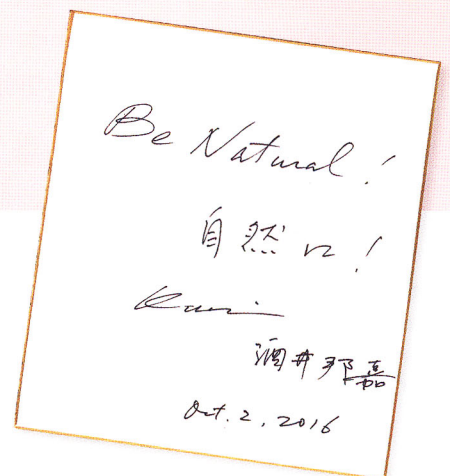 Be Natural!
自然に!
酒井邦嘉
Oct. 2, 2016